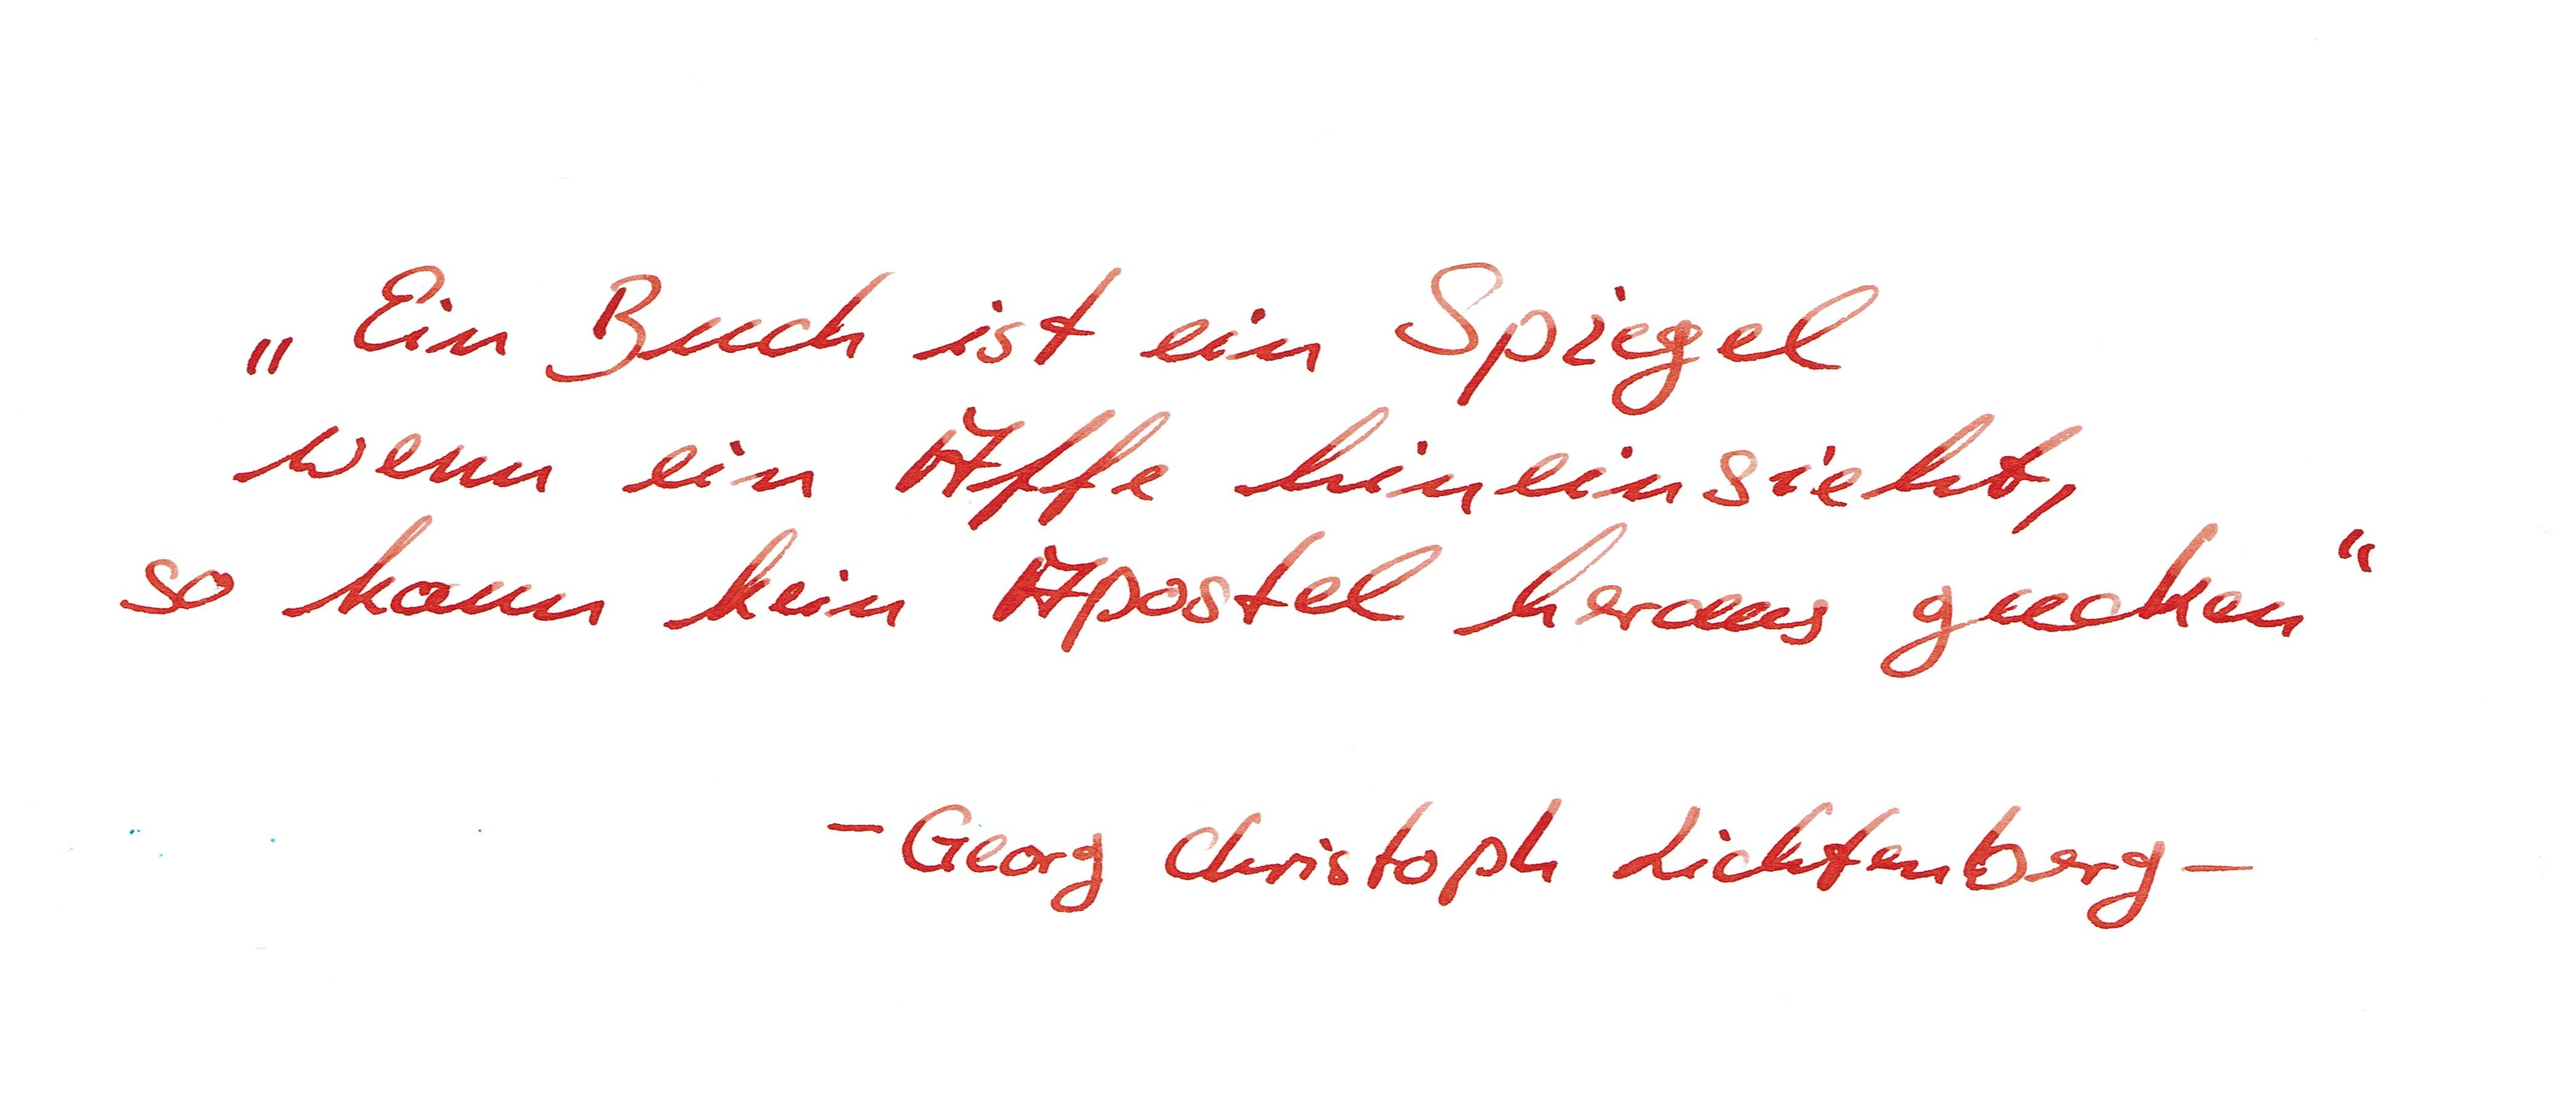 „Ein Buch ist ein Spiegel
wenn ein Affe hineinsieht,
so kann kein Apostel heraus gucken“
- Georg Christoph Lichtenberg -